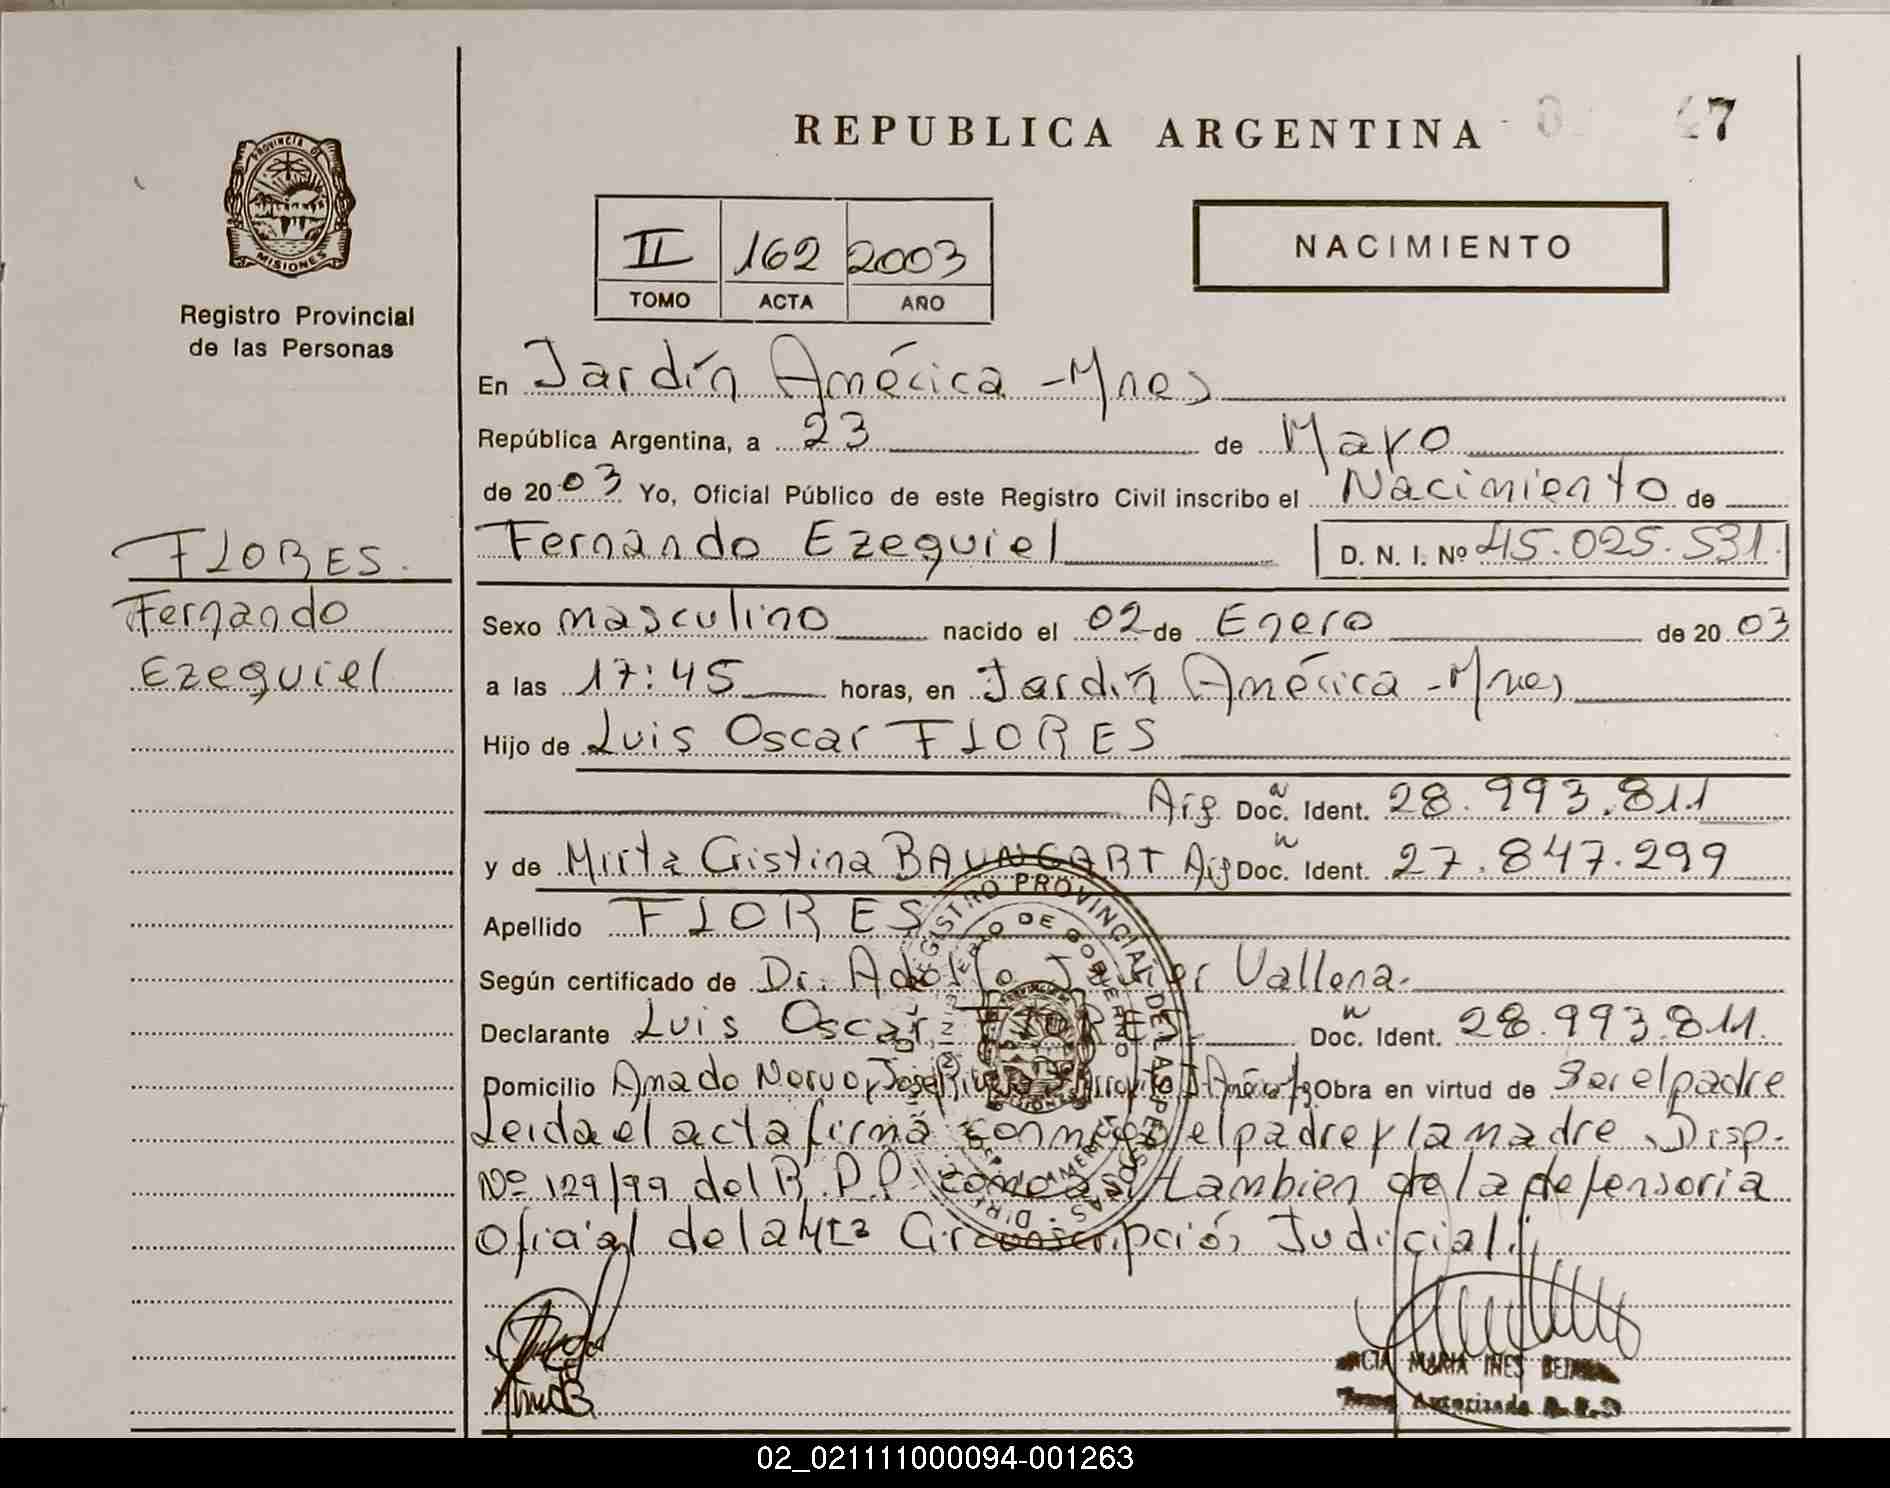 REPUBLICA ARGENTINA
47
PROVINCIA DE
MISIONES
Registro Provincial
de las Personas
II 162 2003
TOMO ACTA AÑO
NACIMIENTO
En Jardín América - Mnes
República Argentina, a 23 de Mayo
de 2003 Yo, Oficial Público de este Registro Civil inscribo el Nacimiento de
Fernando Ezequiel D. N. I. Nº 45.025.531.
FLORES.
Fernando
Ezequiel
Sexo masculino nacido el 02 de Enero de 2003
a las 17:45 horas, en Jardín América - Mnes
Hijo de Luis Oscar FLORES
Arg Doc. Ident. 28.993.811
y de Mirta Cristina BAUNGART Arg Doc. Ident. 27.847.299
Apellido FLORES
Según certificado de Dr. Adolfo Javier Vallena.
Declarante Luis Oscar FLORES Doc. Ident. 28.993.811.
Domicilio Amado Nervo y José Rivera Arroyito J. América Obra en virtud de Ser el padre
Leida el acta firma conmigo el padre y la madre. Disp.
Nº 129/99 del R.P.P. como asi tambien de la defensoria
Oficial de la 4ta Circunscripción Judicial.
REGISTRO PROVINCIAL DE LAS PERSONAS
MINISTERIO DE GOBIERNO
MARIA INES
Autorizada R.P.P
02_021111000094-001263